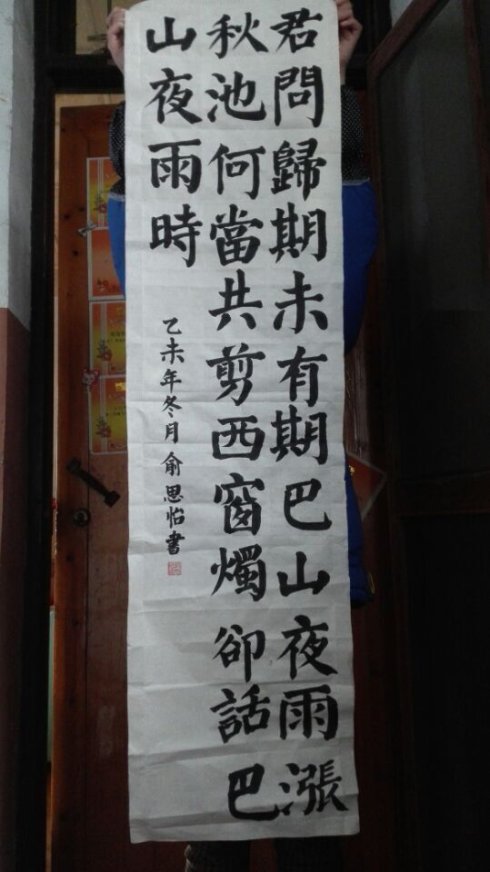 君問歸期未有期巴山夜雨漲
秋池何當共剪西窗燭卻話巴
山夜雨時
乙未年冬月俞思怡書